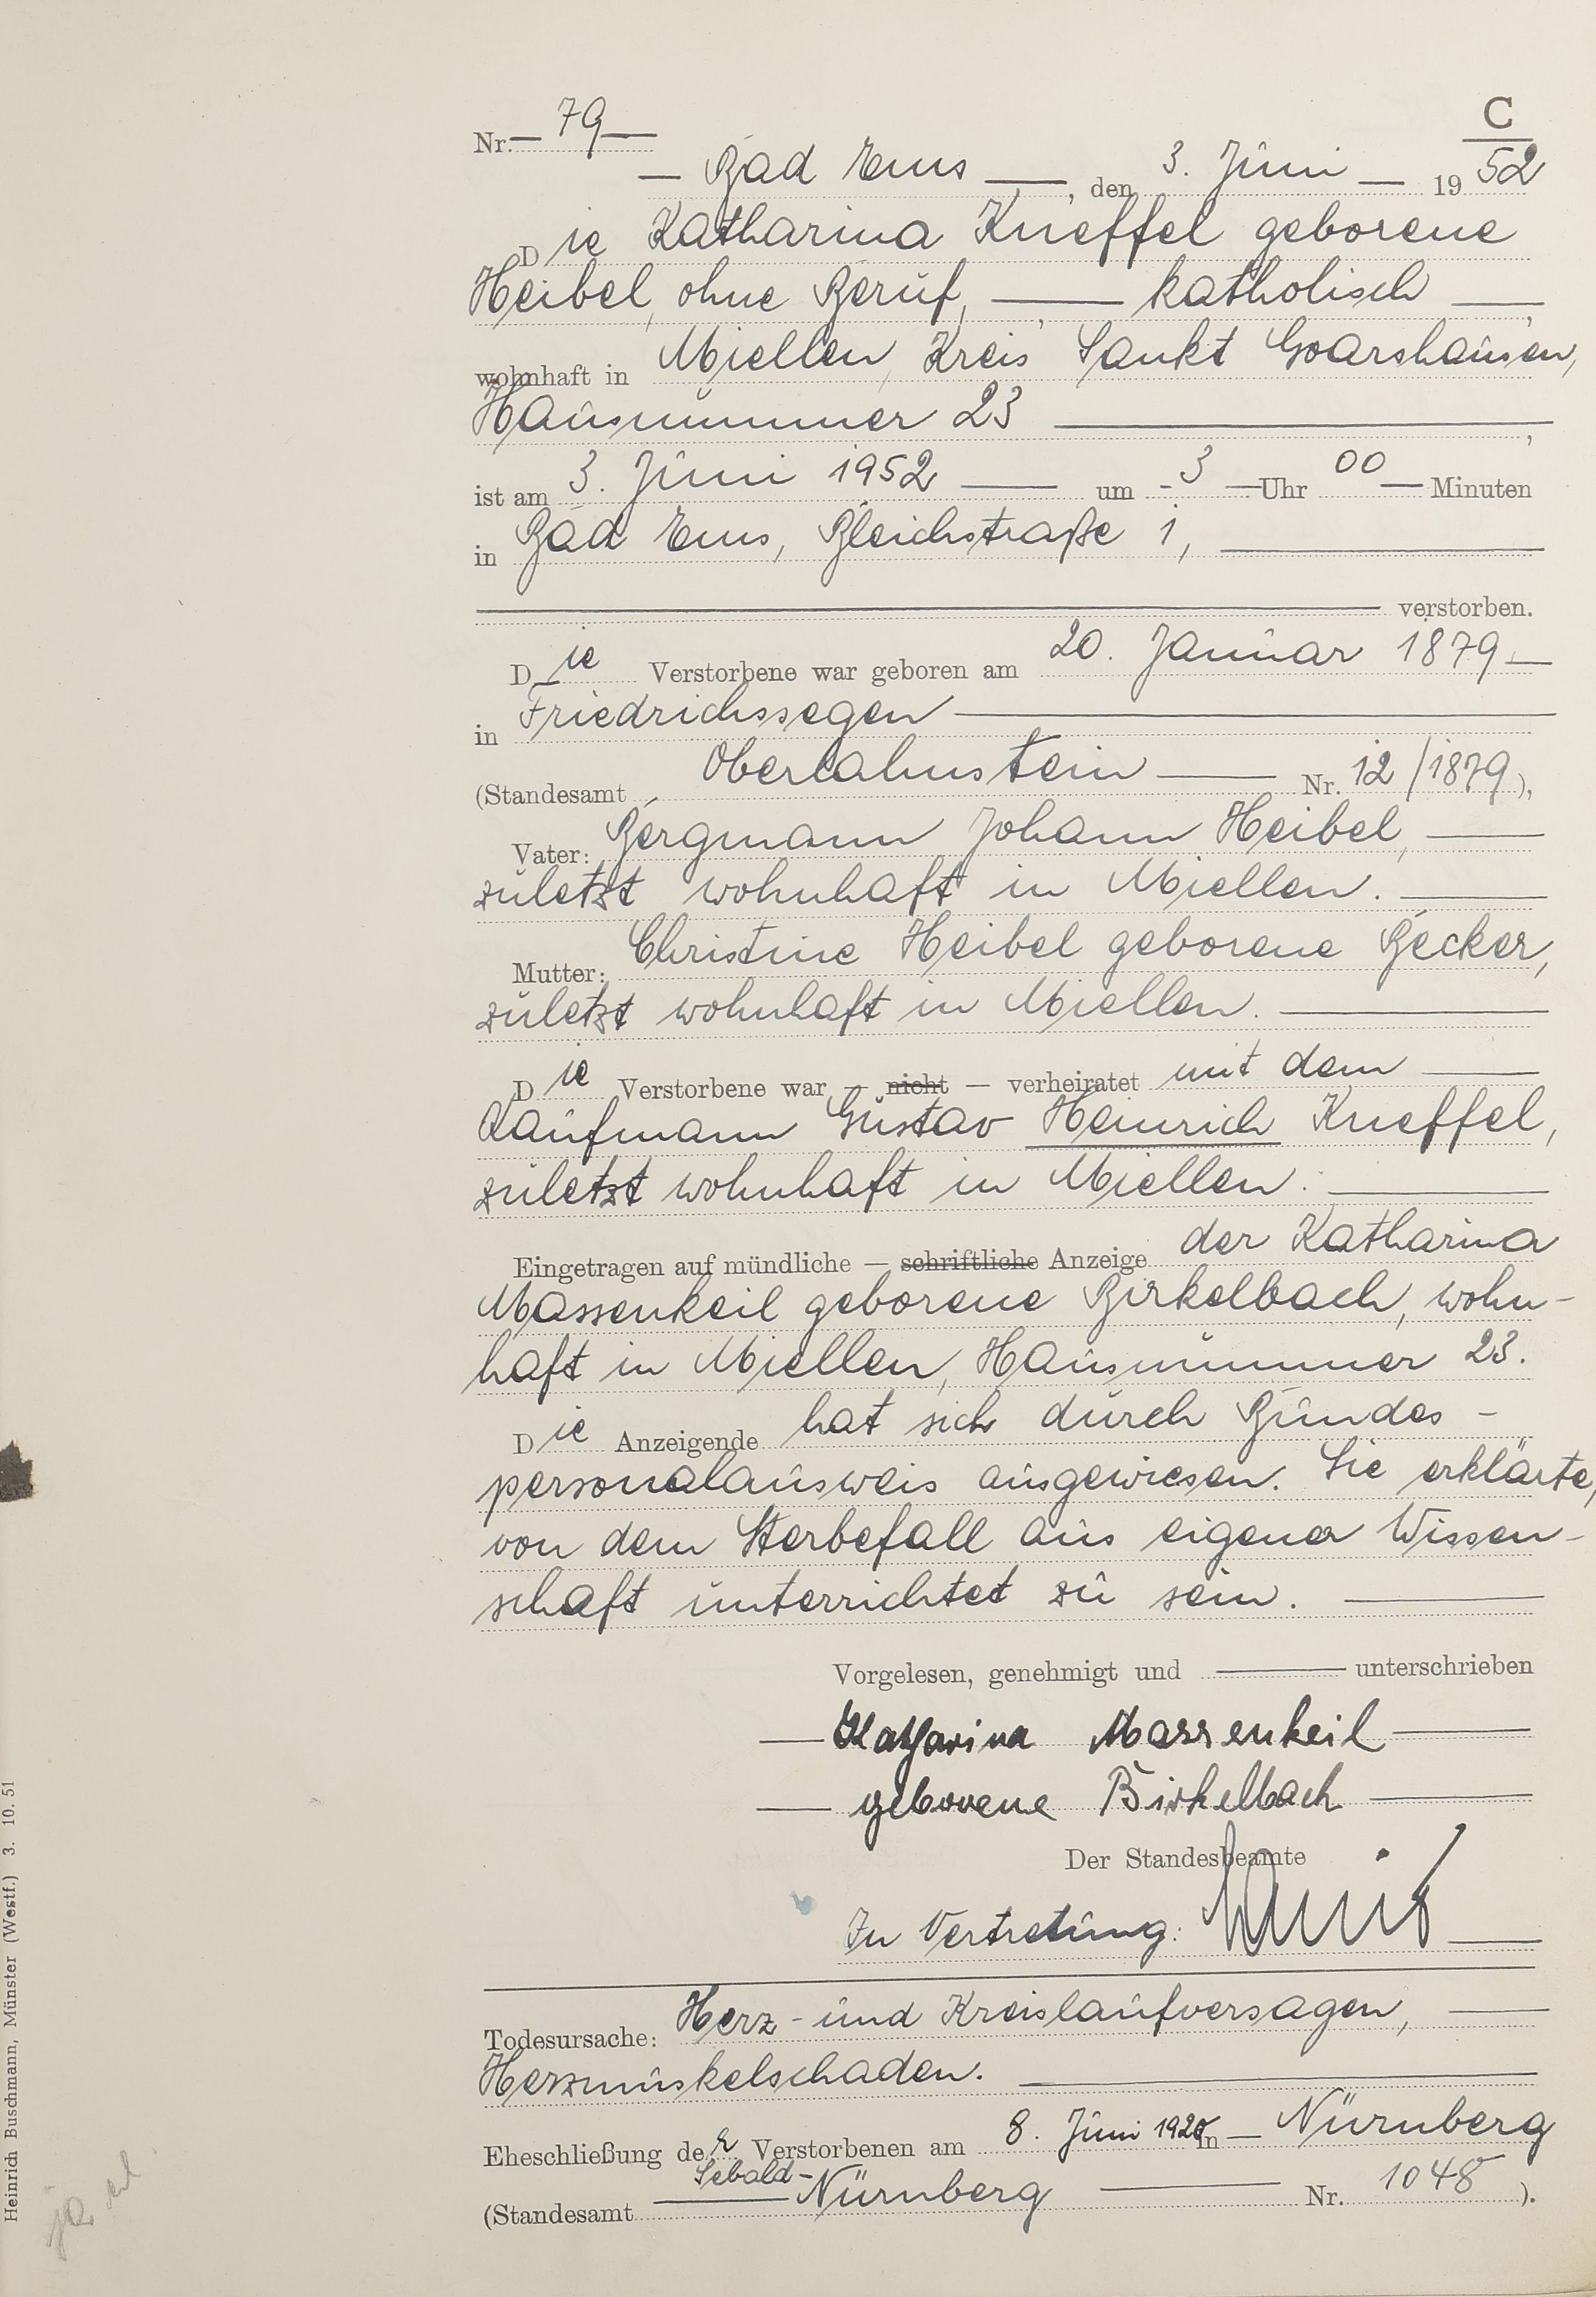 C
Nr. 79
Bad Ems, den 3. Juni 1952
Die Katharina Kneffel geborene
Heibel, ohne Beruf, katholisch,
wohnhaft in Miellen, Kreis Sankt Goarshausen,
Hausnummer 23,
ist am 3. Juni 1952 um 3 Uhr 00 Minuten
in Bad Ems, Bleichstraße 1,
verstorben.
Die Verstorbene war geboren am 20. Januar 1879
in Friedrichssegen
(Standesamt Oberlahnstein Nr. 12/1879),
Vater: Bergmann Johann Heibel,
zuletzt wohnhaft in Miellen.
Mutter: Christine Heibel geborene Becker,
zuletzt wohnhaft in Miellen.
Die Verstorbene war — nicht — verheiratet mit dem
Kaufmann Gustav Heinrich Kneffel,
zuletzt wohnhaft in Miellen.
Eingetragen auf mündliche — schriftliche Anzeige der Katharina
Massenkeil geborene Birkelbach, wohn-
haft in Miellen, Hausnummer 23.
Die Anzeigende hat sich durch Bundes-
personalausweis ausgewiesen. Sie erklärte,
von dem Sterbefall aus eigener Wissen-
schaft unterrichtet zu sein.
Vorgelesen, genehmigt und unterschrieben
Katharina Massenkeil
geborene Birkelbach
Der Standesbeamte
In Vertretung:
Todesursache: Herz- und Kreislaufversagen,
Herzmuskelschaden.
Eheschließung der Verstorbenen am 8. Juni 1920 in Nürnberg
Sebald-
(Standesamt Nürnberg Nr. 1048).
Heinrich Buschmann, Münster (Westf.) 3. 10. 51